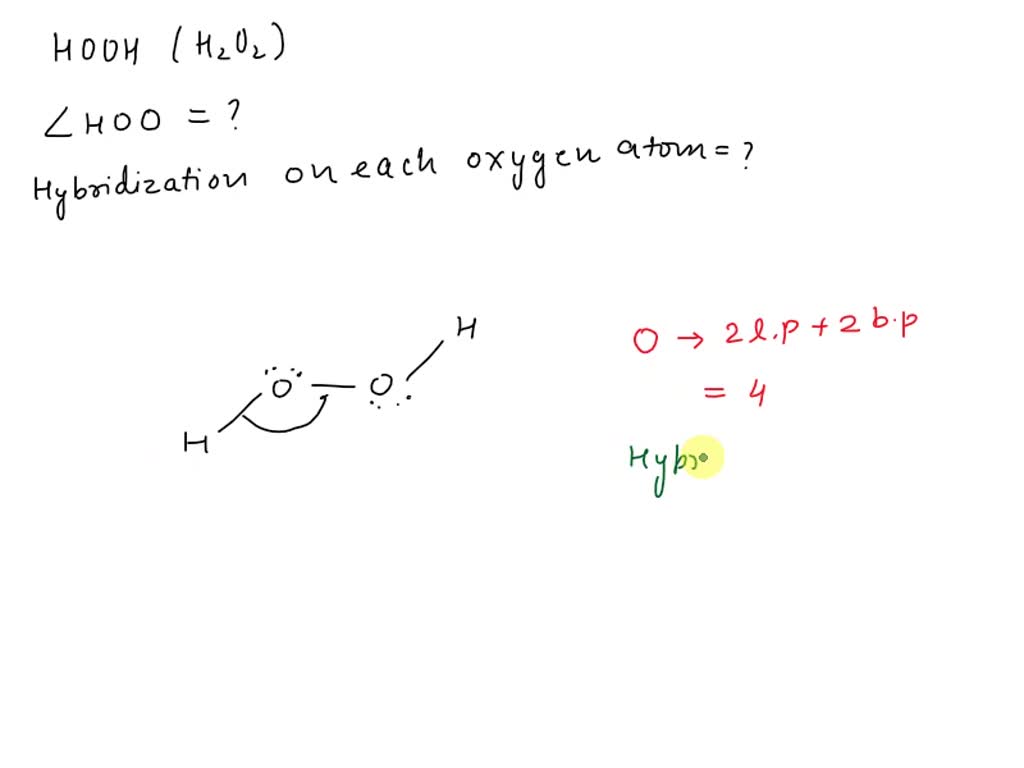 HOOH (H₂O₂)
∠HOO = ?
Hybridization on each oxygen atom = ?
H
O → 2 l.p + 2 b.p
O — O
= 4
H
Hyb